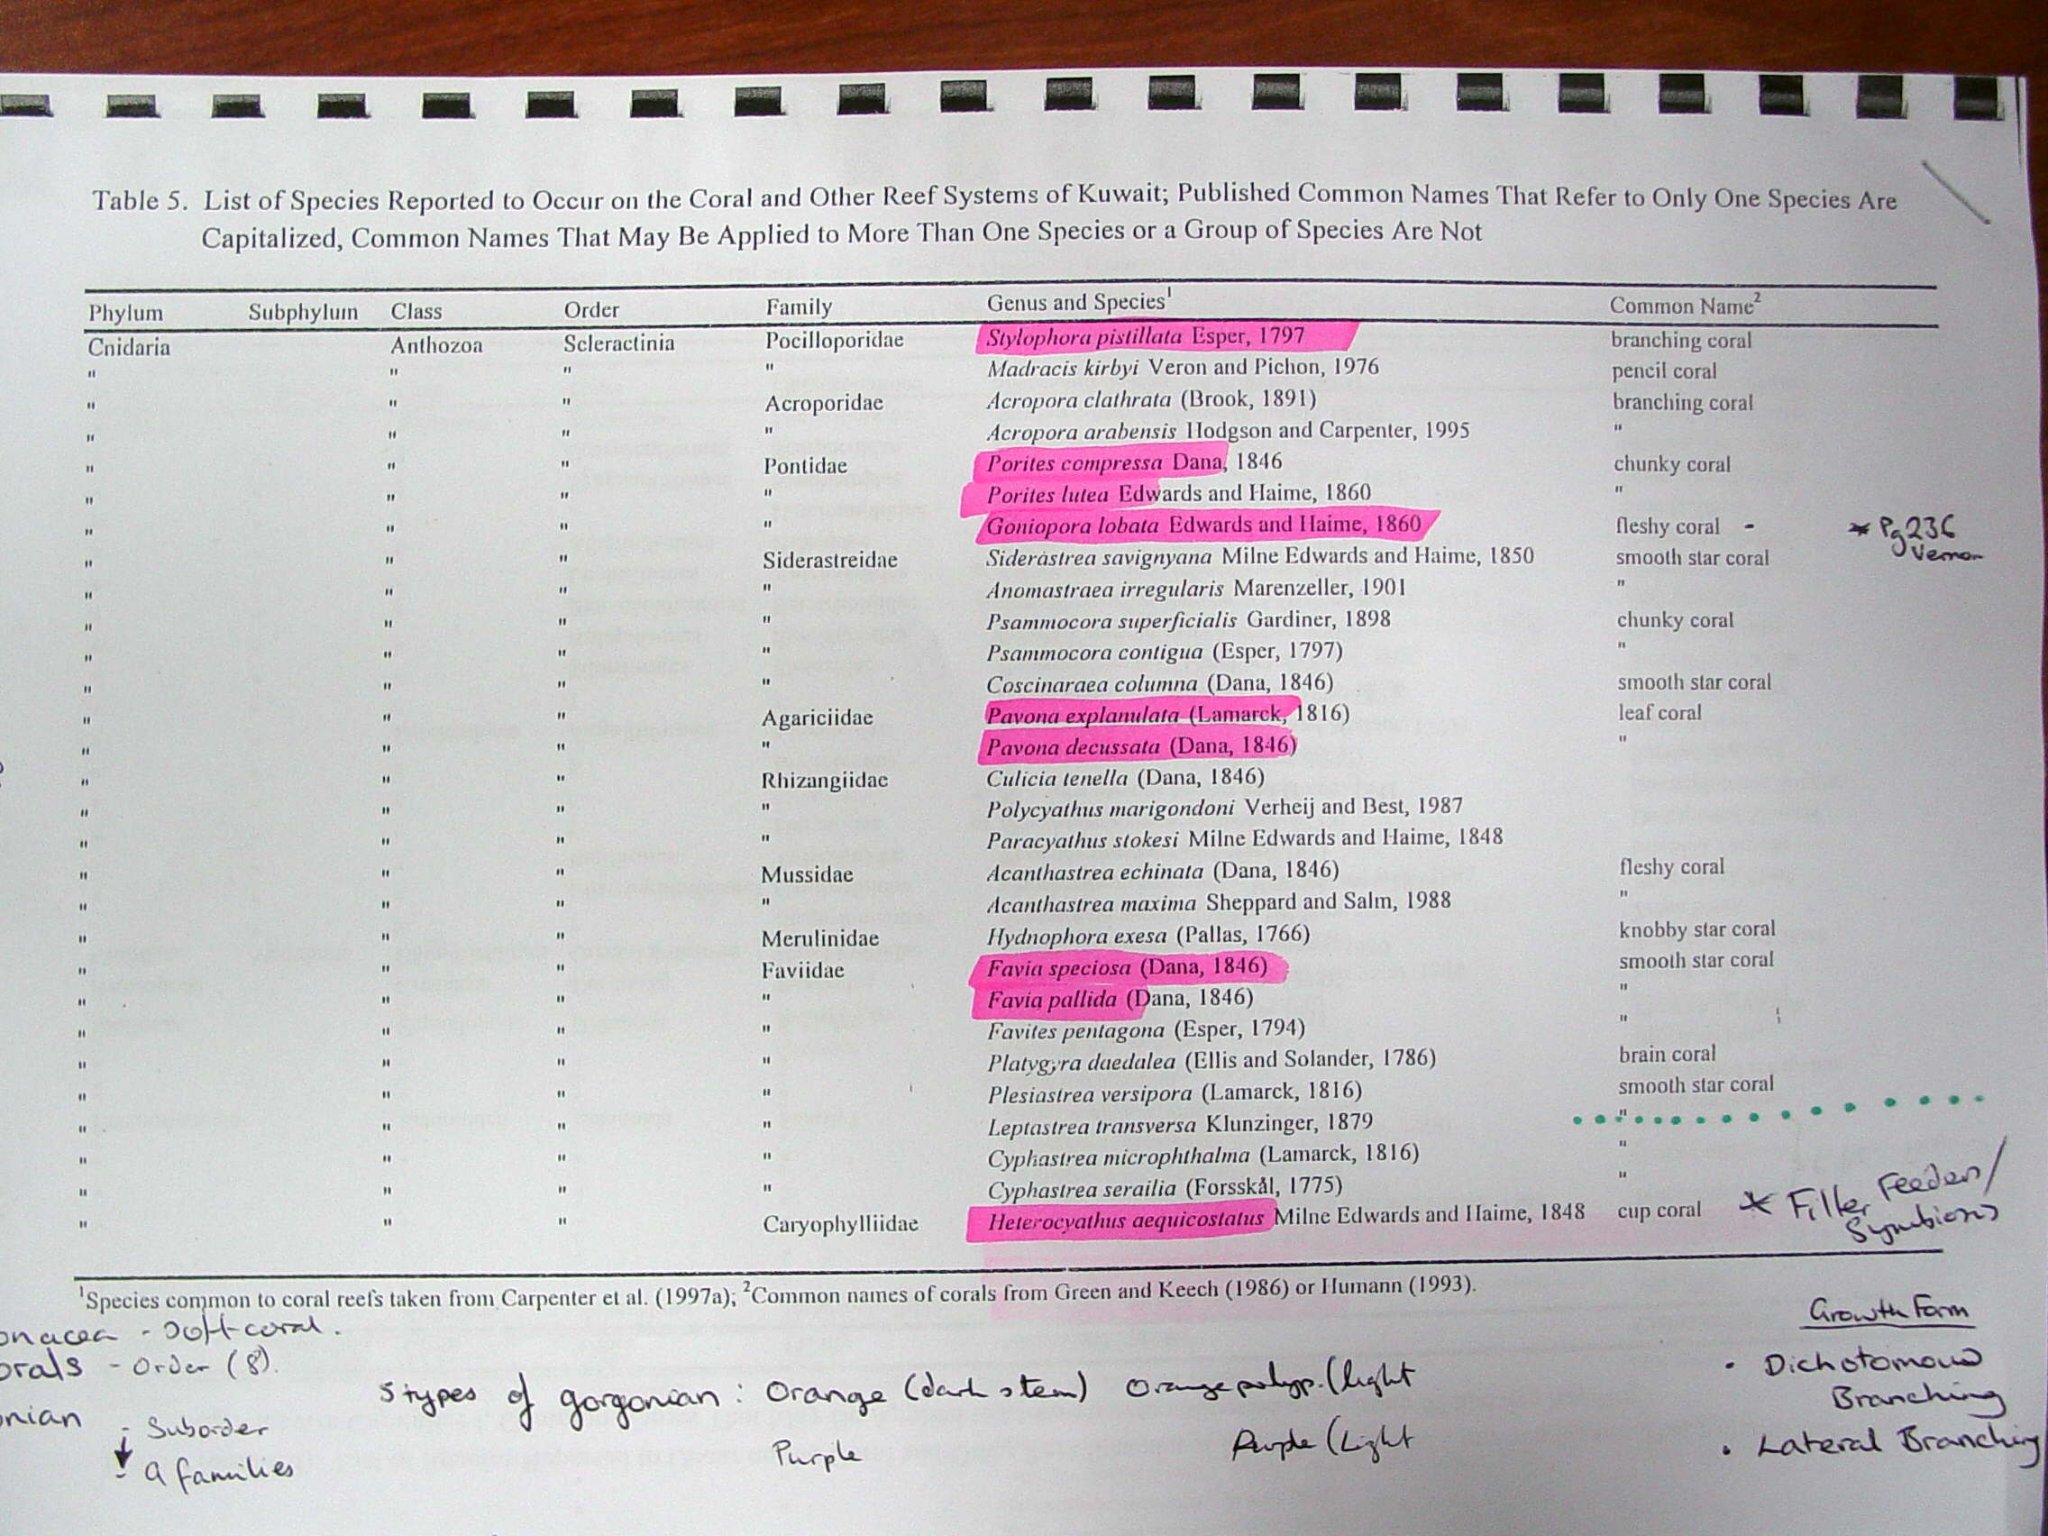 Table 5. List of Species Reported to Occur on the Coral and Other Reef Systems of Kuwait; Published Common Names That Refer to Only One Species Are
Capitalized, Common Names That May Be Applied to More Than One Species or a Group of Species Are Not
Phylum Subphylum Class Order Family Genus and Species¹ Common Name²
Cnidaria Anthozoa Scleractinia Pocilloporidae Stylophora pistillata Esper, 1797 branching coral
" " " " Madracis kirbyi Veron and Pichon, 1976 pencil coral
" " " Acroporidae Acropora clathrata (Brook, 1891) branching coral
" " " " Acropora arabensis Hodgson and Carpenter, 1995 "
" " " Pontidae Porites compressa Dana, 1846 chunky coral
" " " " Porites lutea Edwards and Haime, 1860 "
" " " " Goniopora lobata Edwards and Haime, 1860 fleshy coral - * Pg 236
Vernon
" " " Siderastreidae Siderastrea savignyana Milne Edwards and Haime, 1850 smooth star coral
" " " " Anomastraea irregularis Marenzeller, 1901 "
" " " " Psammocora superficialis Gardiner, 1898 chunky coral
" " " " Psammocora contigua (Esper, 1797) "
" " " " Coscinaraea columna (Dana, 1846) smooth star coral
" " " Agariciidae Pavona explanulata (Lamarck, 1816) leaf coral
" " " " Pavona decussata (Dana, 1846) "
" " " Rhizangiidae Culicia tenella (Dana, 1846)
" " " " Polycyathus marigondoni Verheij and Best, 1987
" " " " Paracyathus stokesi Milne Edwards and Haime, 1848
" " " Mussidae Acanthastrea echinata (Dana, 1846) fleshy coral
" " " " Acanthastrea maxima Sheppard and Salm, 1988 "
" " " Merulinidae Hydnophora exesa (Pallas, 1766) knobby star coral
" " " Faviidae Favia speciosa (Dana, 1846) smooth star coral
" " " " Favia pallida (Dana, 1846) "
" " " " Favites pentagona (Esper, 1794) "
" " " " Platygyra daedalea (Ellis and Solander, 1786) brain coral
" " " " Plesiastrea versipora (Lamarck, 1816) smooth star coral
" " " " Leptastrea transversa Klunzinger, 1879 "
" " " " Cyphastrea microphthalma (Lamarck, 1816) "
" " " " Cyphastrea serailia (Forsskål, 1775) "
" " " Caryophylliidae Heterocyathus aequicostatus Milne Edwards and Haime, 1848 cup coral * Filter Feeders/
Symbiosis
¹Species common to coral reefs taken from Carpenter et al. (1997a); ²Common names of corals from Green and Keech (1986) or Humann (1993).
onacea - Soft coral.
orals - Order (8).
onian - Suborder
- 9 families
5 types of gorgonian: Orange (dark stem) Orange polyp. (light
Purple Purple (Light
Growth Form
• Dichotomous
Branching
• Lateral Branching